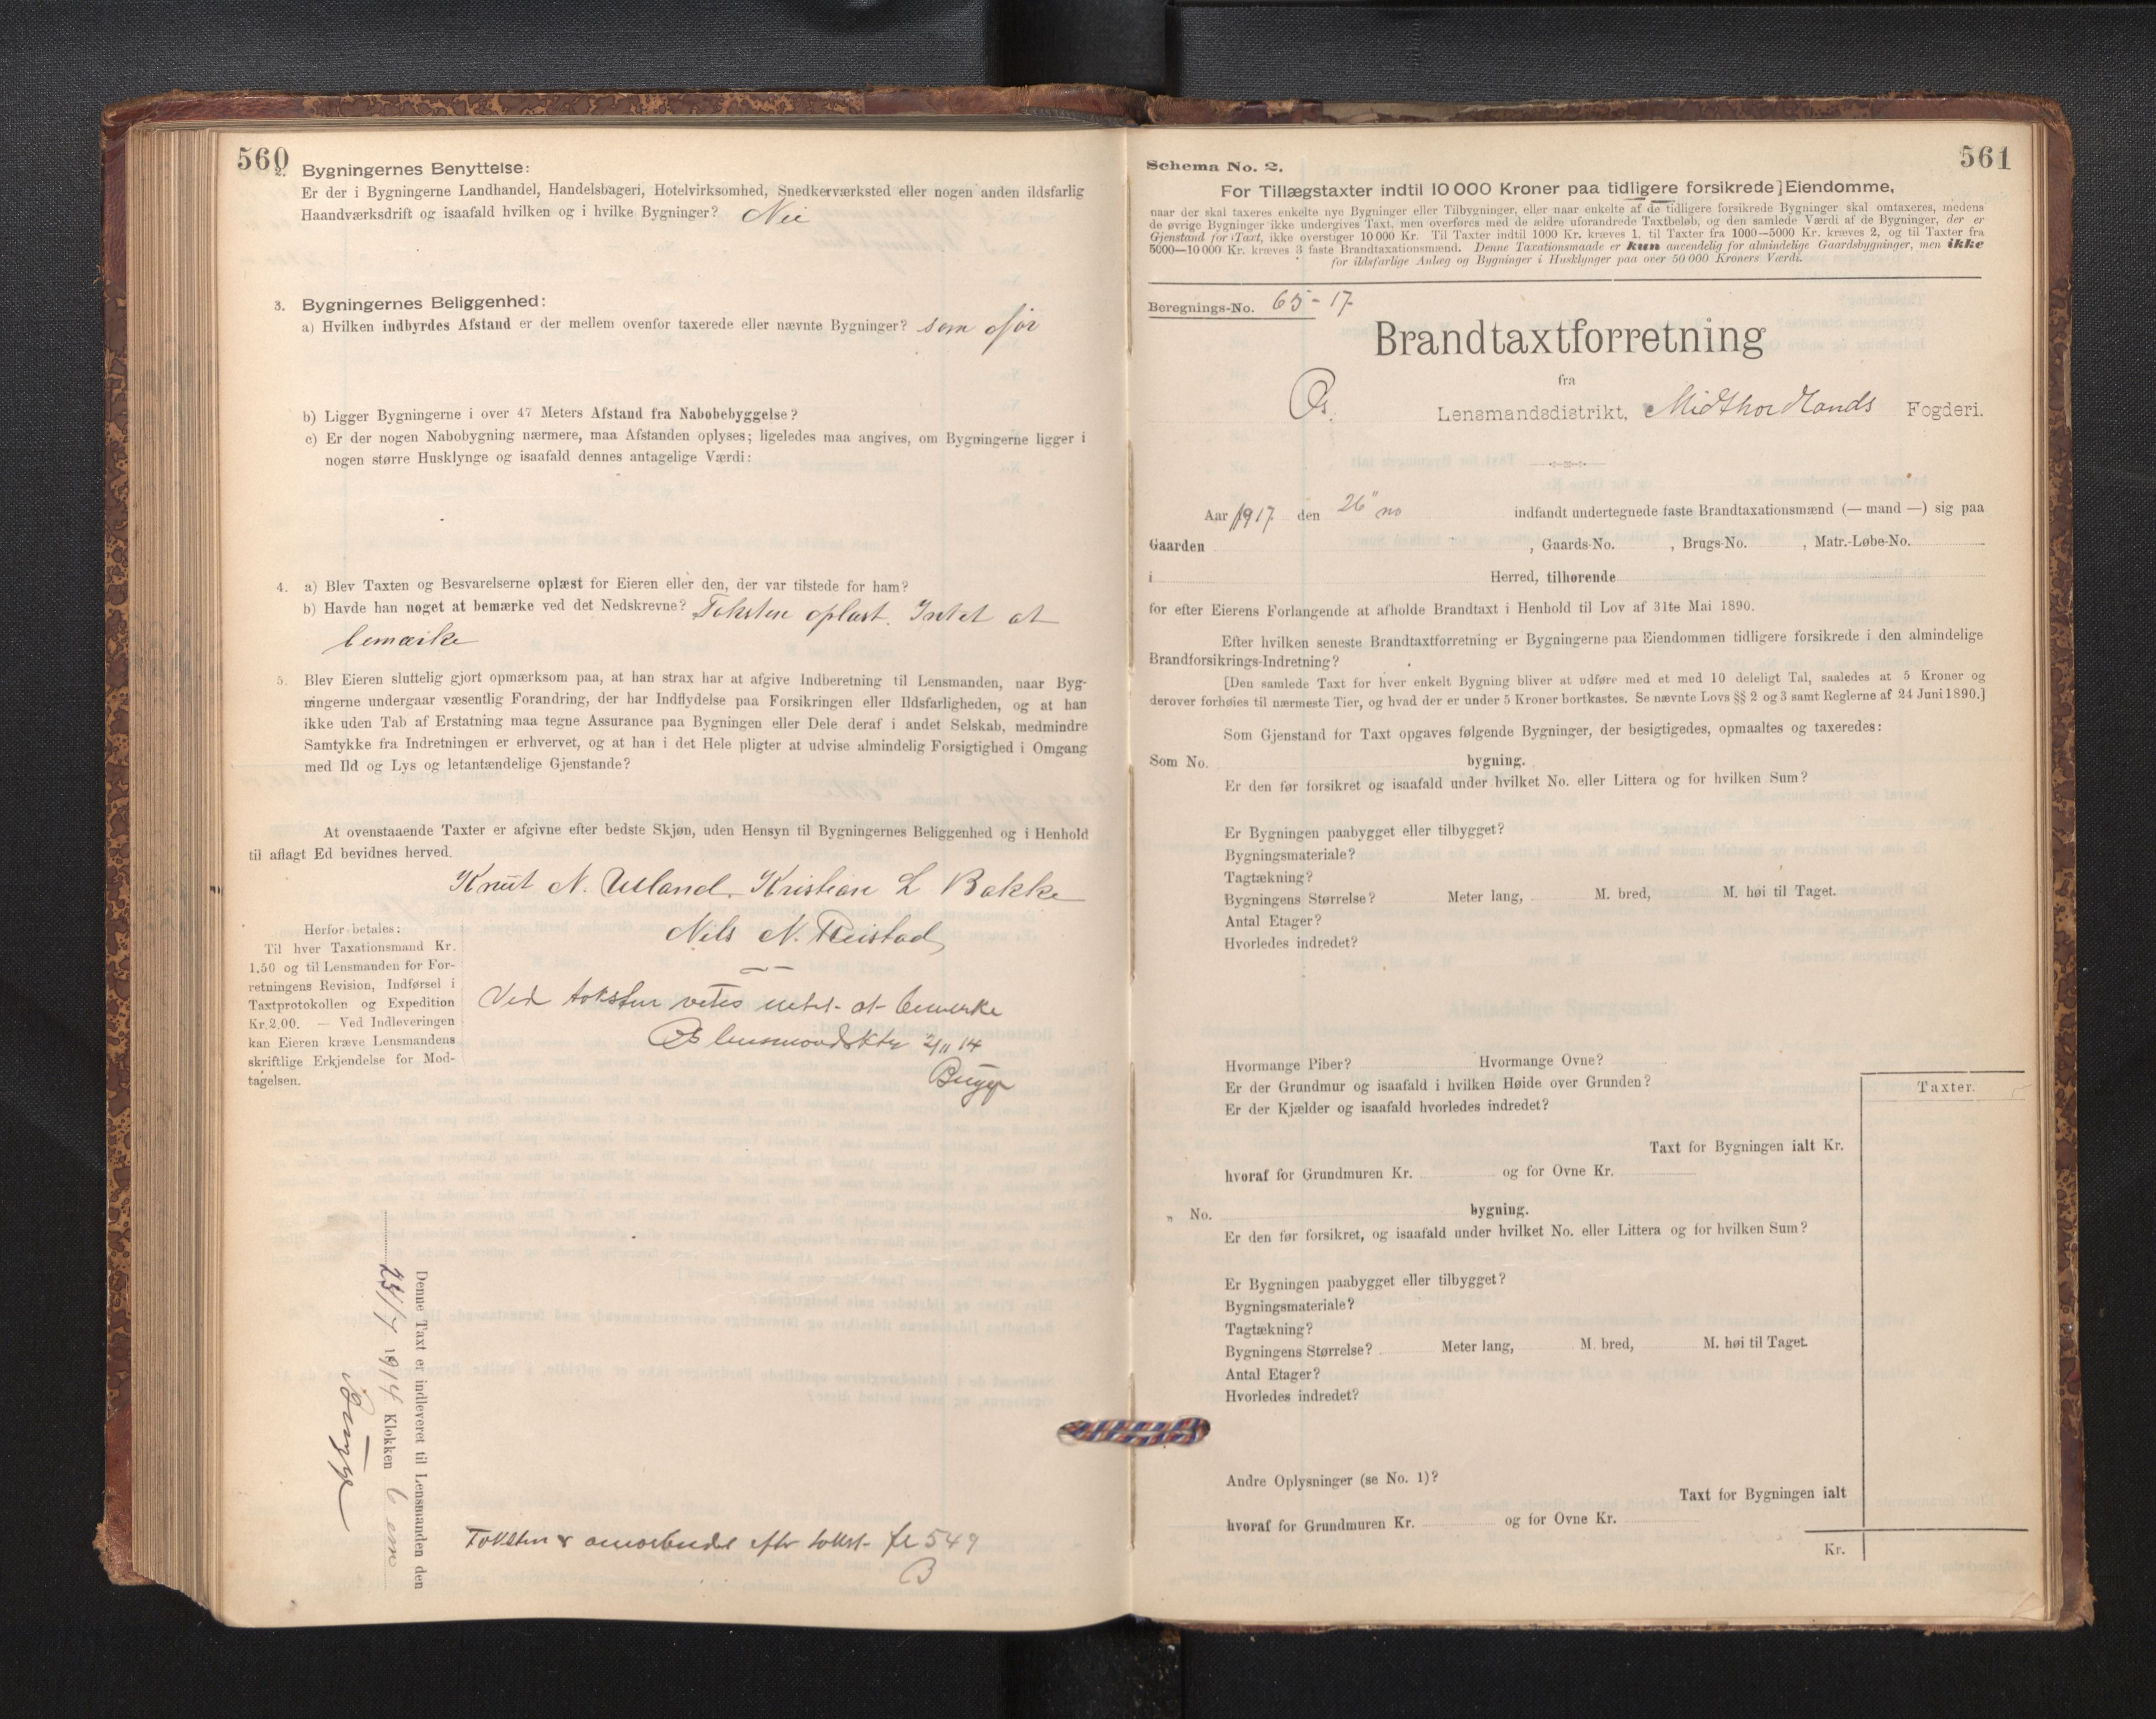 560
2. Bygningernes Benyttelse:
Er der i Bygningerne Landhandel, Handelsbageri, Hotelvirksomhed, Snedkerværksted eller nogen anden ildsfarlig
Haandværksdrift og isaafald hvilken og i hvilke Bygninger? Nei
3. Bygningernes Beliggenhed:
a) Hvilken indbyrdes Afstand er der mellem ovenfor taxerede eller nævnte Bygninger? som før
b) Ligger Bygningerne i over 47 Meters Afstand fra Nabobebyggelse?
c) Er der nogen Nabobygning nærmere, maa Afstanden oplyses; ligeledes maa angives, om Bygningerne ligger i
nogen større Husklynge og isaafald dennes antagelige Værdi:
4. a) Blev Taxten og Besvarelserne oplæst for Eieren eller den, der var tilstede for ham?
b) Havde han noget at bemærke ved det Nedskrevne? Taksten oplæst. Intet at
bemærke
5. Blev Eieren sluttelig gjort opmærksom paa, at han strax har at afgive Indberetning til Lensmanden, naar Byg-
ningerne undergaar væsentlig Forandring, der har Indflydelse paa Forsikringen eller Ildsfarligheden, og at han
ikke uden Tab af Erstatning maa tegne Assurance paa Bygningen eller Dele deraf i andet Selskab, medmindre
Samtykke fra Indretningen er erhvervet, og at han i det Hele pligter at udvise almindelig Forsigtighed i Omgang
med Ild og Lys og letantændelige Gjenstande?
At ovenstaaende Taxter er afgivne efter bedste Skjøn, uden Hensyn til Bygningernes Beliggenhed og i Henhold
til aflagt Ed bevidnes herved.
Knut N. Kristian L Bakke
Nils N.
Herfor betales:
Til hver Taxationsmand Kr.
1.50 og til Lensmanden for For-
retningens Revision, Indførsel i
Taxtprotokollen og Expedition
Kr. 2.00. — Ved Indleveringen
kan Eieren kræve Lensmandens
skriftlige Erkjendelse for Mod-
tagelsen.
Ved taksten vites intet at bemerke
Os 2/11 14
Denne Taxt er indleveret til Lensmanden den
1914 Klokken 6 em
Taksten er omarbeidet efter takst- fl 549
B
561
Schema No. 2.
For Tillægstaxter indtil 10 000 Kroner paa tidligere forsikrede Eiendomme,
naar der skal taxeres enkelte nye Bygninger eller Tilbygninger, eller naar enkelte af de tidligere forsikrede Bygninger skal omtaxeres, medens
de øvrige Bygninger ikke undergives Taxt, men overføres med de ældre uforandrede Taxtbeløb, og den samlede Værdi af de Bygninger, der er
Gjenstand for Taxt, ikke overstiger 10 000 Kr. Til Taxter indtil 1000 Kr. kræves 1, til Taxter fra 1000—5000 Kr. kræves 2, og til Taxter fra
5000—10 000 Kr. kræves 3 faste Brandtaxationsmænd. Denne Taxationsmaade er kun anvendelig for almindelige Gaardsbygninger, men ikke
for ildsfarlige Anlæg og Bygninger i Husklynger paa over 50 000 Kroners Værdi.
Beregnings-No. 65-17
Brandtaxtforretning
fra
Os Lensmandsdistrikt, Midthordlands Fogderi.
Aar 1917 den 26" no indfandt undertegnede faste Brandtaxationsmænd (— mand —) sig paa
Gaarden , Gaards-No. , Brugs-No. , Matr.-Løbe-No.
i Herred, tilhørende
for efter Eierens Forlangende at afholde Brandtaxt i Henhold til Lov af 31te Mai 1890.
Efter hvilken seneste Brandtaxtforretning er Bygningerne paa Eiendommen tidligere forsikrede i den almindelige
Brandforsikrings-Indretning?
[Den samlede Taxt for hver enkelt Bygning bliver at udføre med et med 10 deleligt Tal, saaledes at 5 Kroner og
derover forhøies til nærmeste Tier, og hvad der er under 5 Kroner bortkastes. Se nævnte Lovs §§ 2 og 3 samt Reglerne af 24 Juni 1890.]
Som Gjenstand for Taxt opgaves følgende Bygninger, der besigtigedes, opmaaltes og taxeredes:
Som No. bygning.
Er den før forsikret og isaafald under hvilket No. eller Littera og for hvilken Sum?
Er Bygningen paabygget eller tilbygget?
Bygningsmateriale?
Tagtækning?
Bygningens Størrelse? Meter lang, M. bred, M. høi til Taget.
Antal Etager?
Hvorledes indredet?
Hvormange Piber? Hvormange Ovne?
Er der Grundmur og isaafald i hvilken Høide over Grunden?
Er der Kjælder og isaafald hvorledes indredet?
Taxter.
Taxt for Bygningen ialt Kr.
hvoraf for Grundmuren Kr. og for Ovne Kr.
„ No. bygning.
Er den før forsikret, og isaafald under hvilket No. eller Littera og for hvilken Sum?
Er Bygningen paabygget eller tilbygget?
Bygningsmateriale?
Tagtækning?
Bygningens Størrelse? Meter lang, M. bred, M. høi til Taget.
Antal Etager?
Hvorledes indredet?
Andre Oplysninger (se No. 1)?
Taxt for Bygningen ialt
hvoraf for Grundmuren Kr. og for Ovne Kr.
Kr.